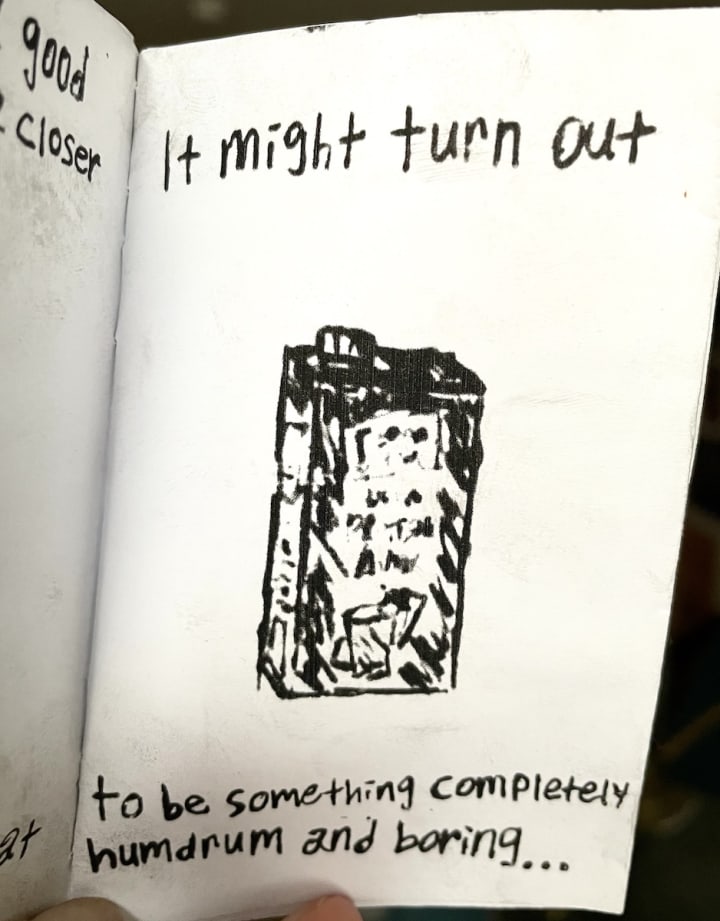 good
closer
It might turn out
to be something completely
humdrum and boring...